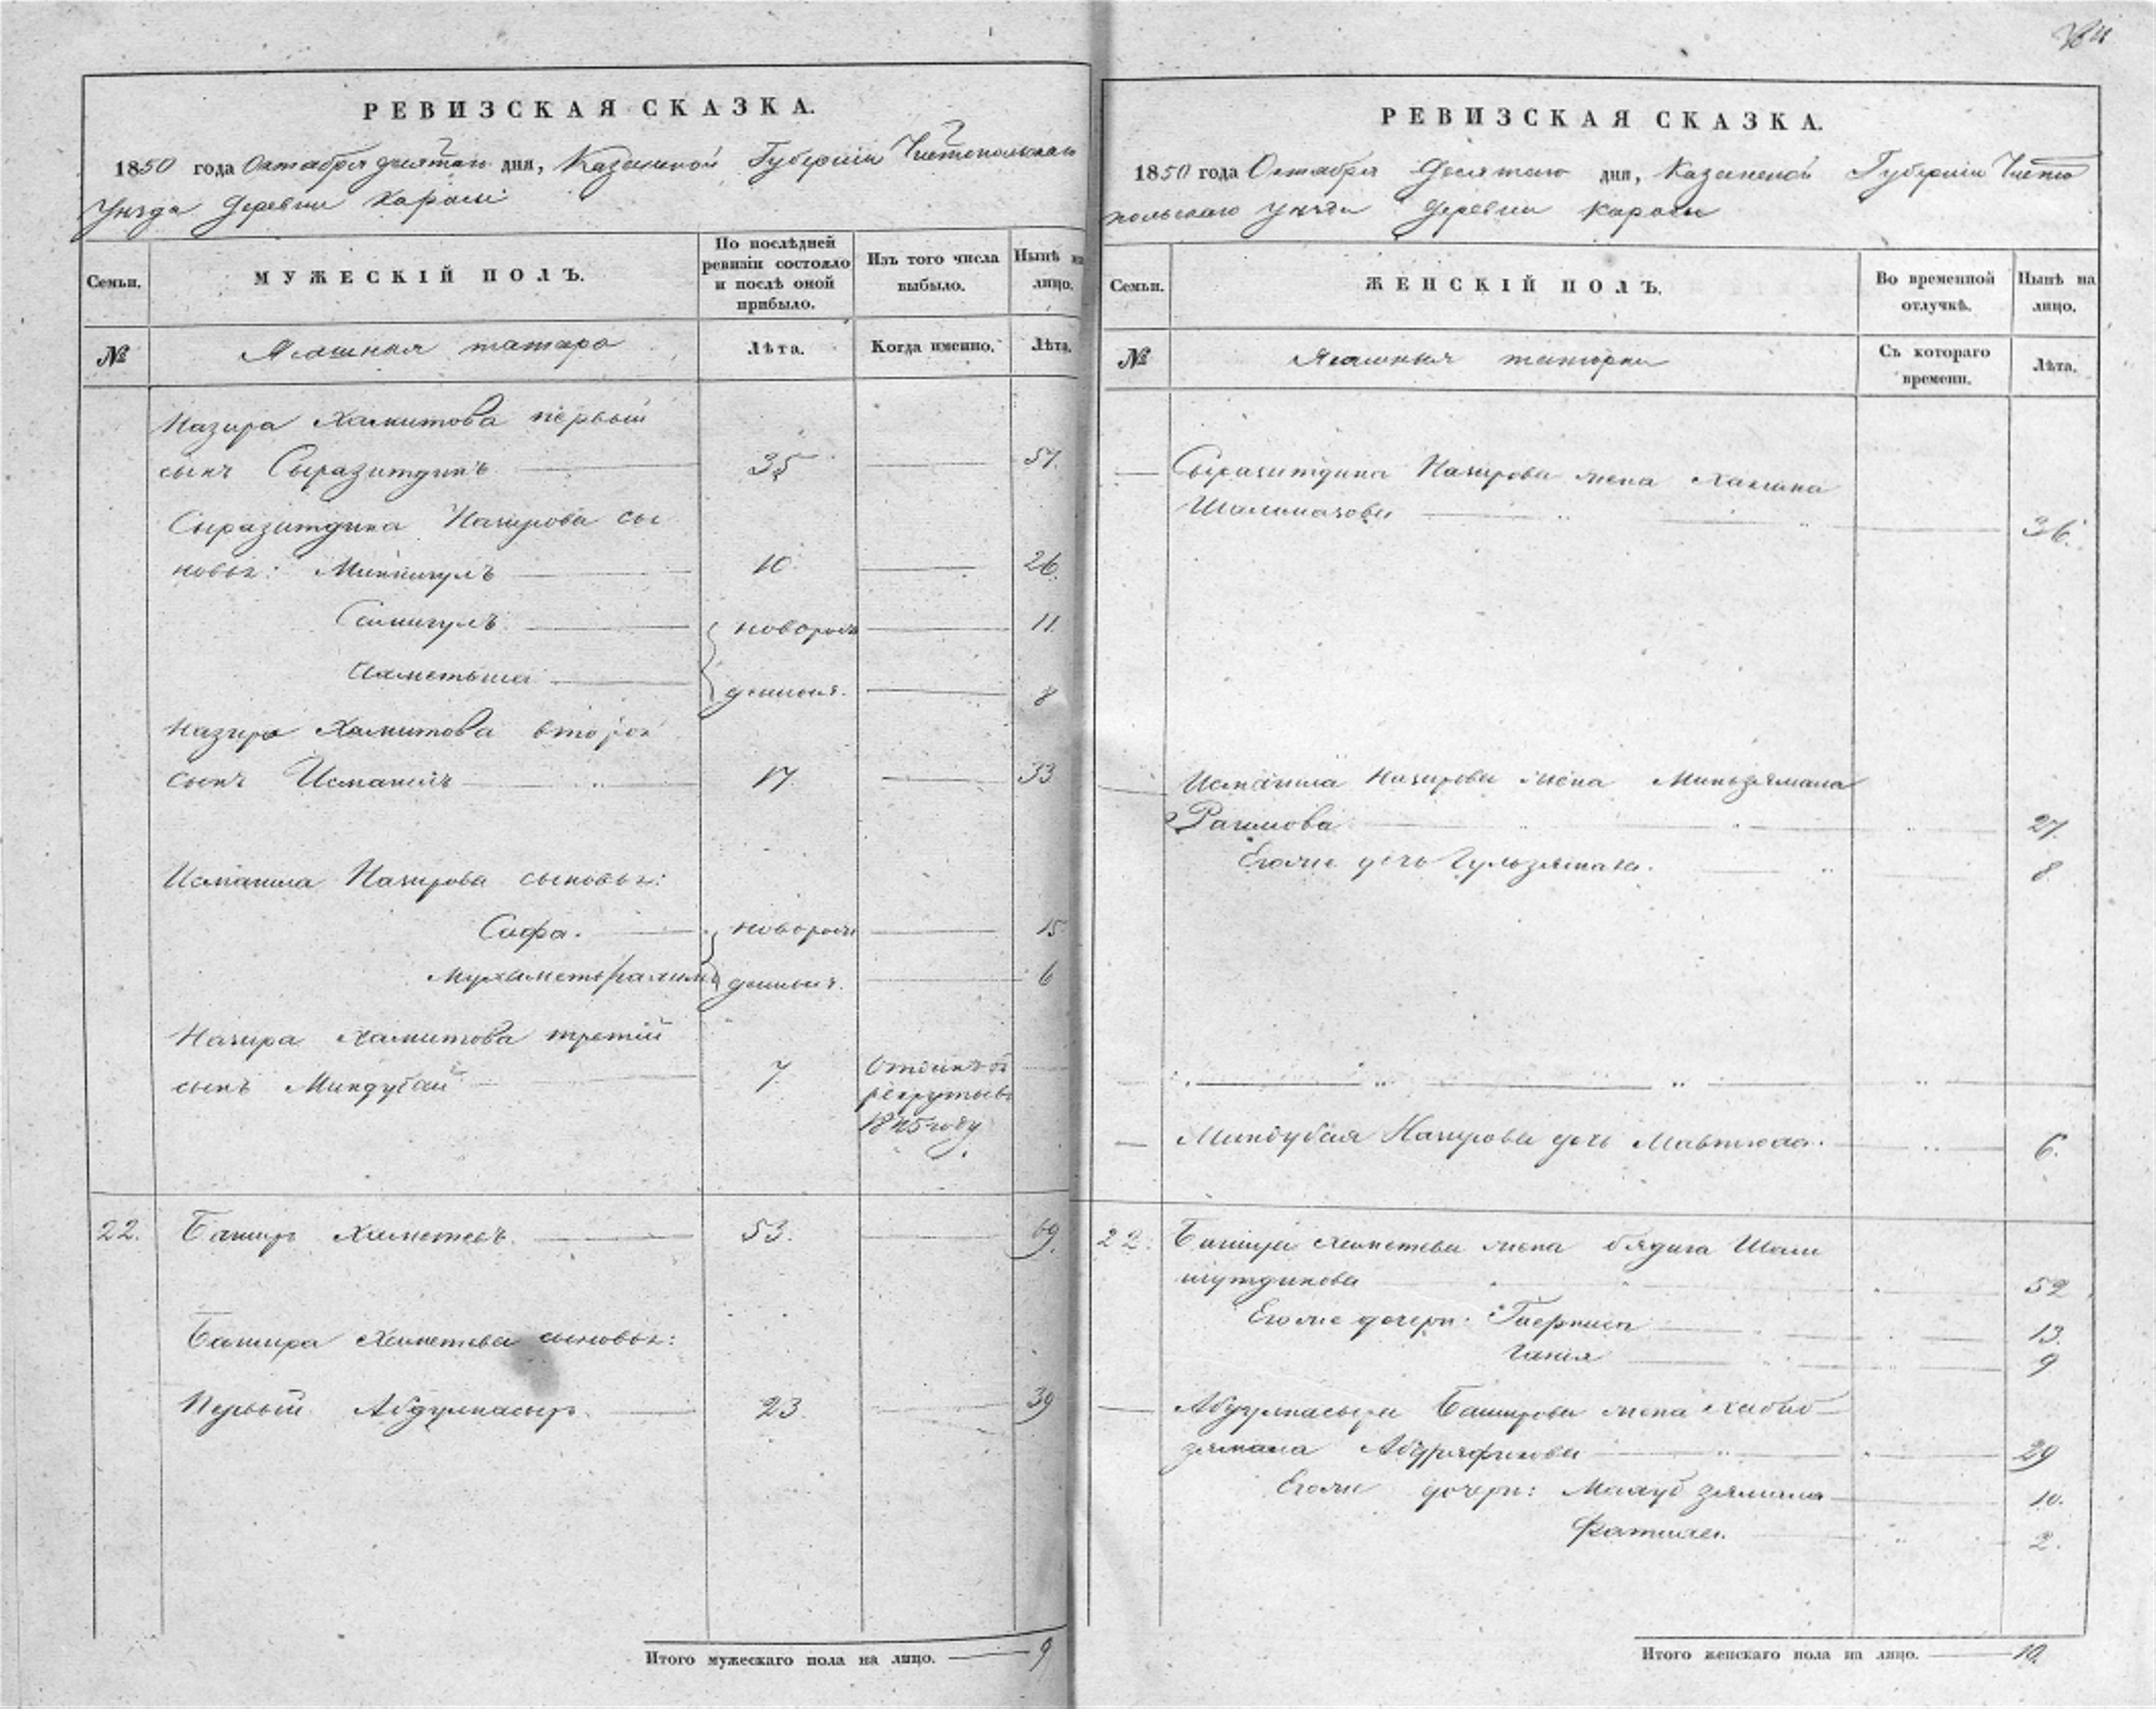 РЕВИЗСКАЯ СКАЗКА.
1850 года Октября десятаго дня, Казанской Губернiи Чистопольскаго
Уѣзда деревни
Семьи.
МУЖЕСКIЙ ПОЛЪ.
По послѣдней ревизiи состояло и послѣ оной прибыло.
Изъ того числа выбыло.
Нынѣ на лицо.
№
Ясашныя татара
Лѣта.
Когда именно.
Лѣта.
Назира Хамитова первый
сынъ Сыразитдинъ 35 51.
Сыразитдина Назирова сы
новья: Миннигулъ 10. 26.
Самигулъ новорож 11.
Ахметьша денныя. 8
Назира Хамитова второй
сынъ Исмагилъ 17. 33
Исмагила Назирова сыновья:
Сафа. новорож 15
Мухаметьрахимъ денныя. 6
Назира Хамитова третiй
сынъ Миндубай 7. Отданъ въ
рекруты въ
1845 году
22. Башир Хаметевъ. 53. 69.
Башира Хаметева сыновья:
Первый Абдулнасыр 23 39
Итого мужескаго пола на лицо. 9
РЕВИЗСКАЯ СКАЗКА.
1850 года Октября Десятаго дня, Казанской Губернiи Чисто
польскаго Уѣзда деревни
Семьи.
ЖЕНСКIЙ ПОЛЪ.
Во временной отлучкѣ.
Нынѣ на лицо.
№
Ясашныя татарки
Съ котораго времени.
Лѣта.
Сыразитдина Назирова жена
36.
Исмагила Назирова жена Миньзямала
Рагимова 27.
Его же дочь Гульзямала. 8
Миндубая Назирова дочь 6.
22. Башира Хаметева жена Шам
сутдинова 52
Его же дочери: 13.
Гания 9
Абдулнасыра Баширова жена Хабиб
зямала Абдряфикова 29
Его же дочери: зямала 10.
Фатима. 2.
Итого женскаго пола на лицо. 10.